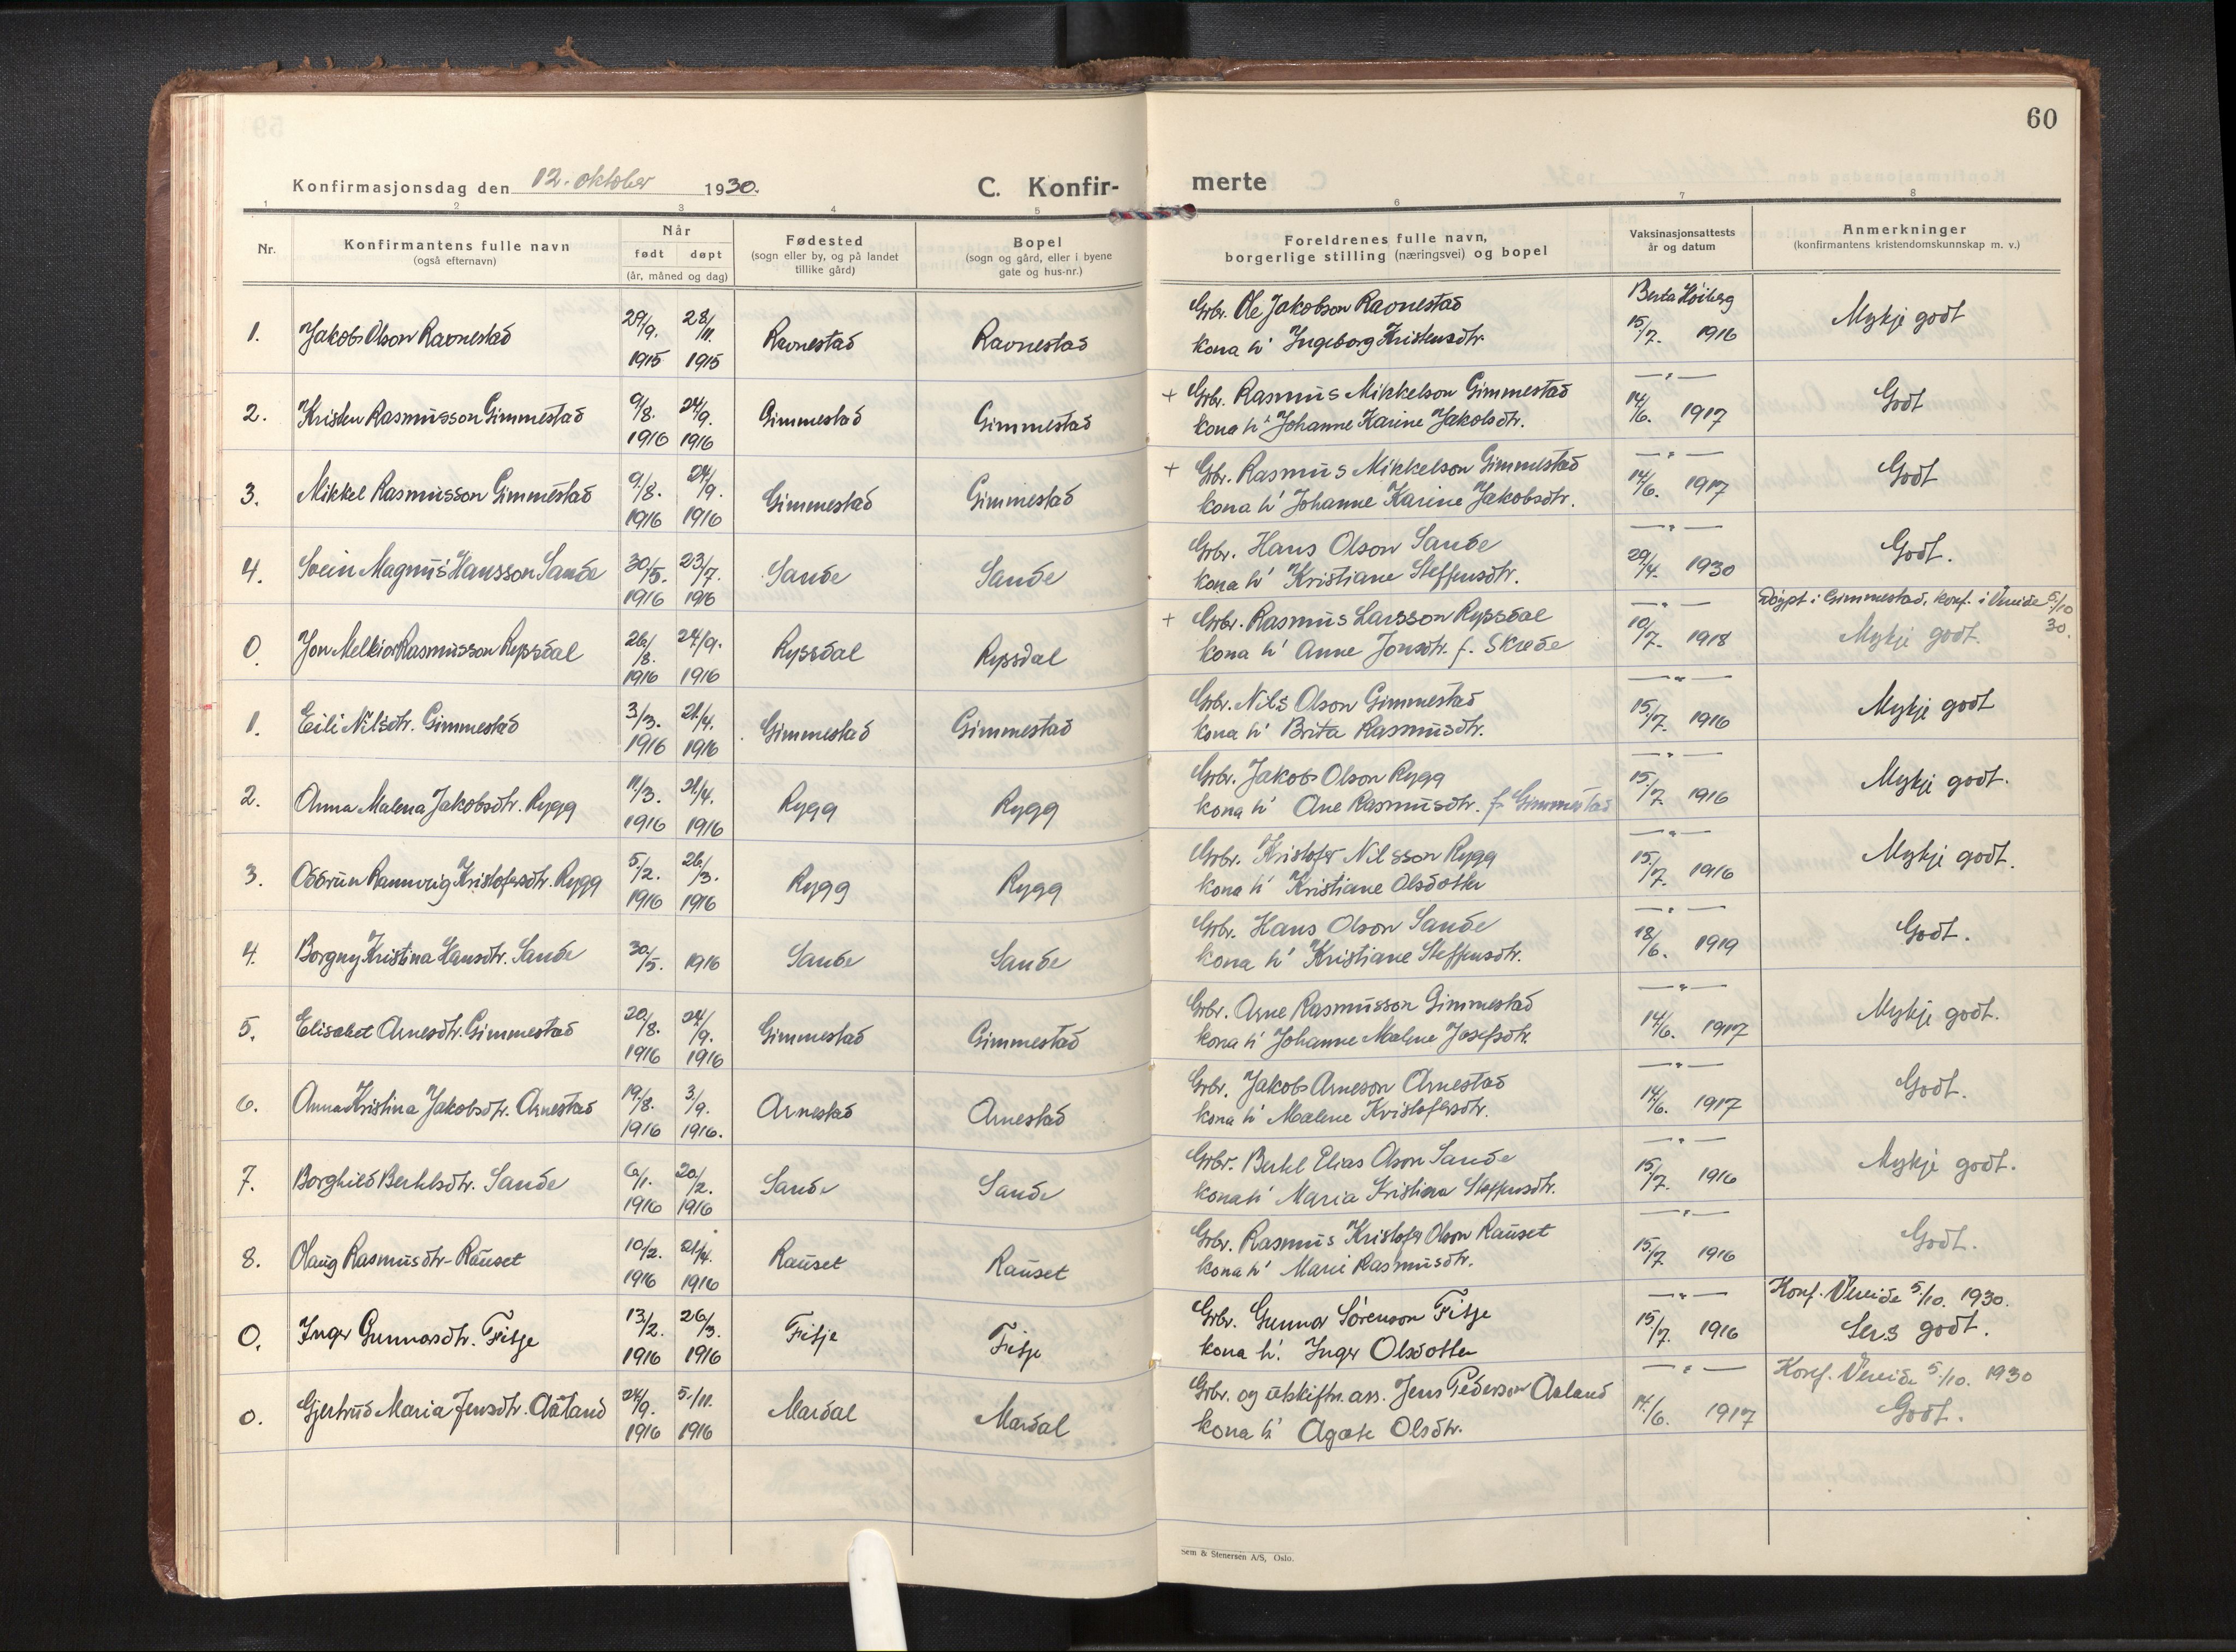 60
Konfirmasjonsdag den 12. oktober 1930. C. Konfir- merte
1 2 3 4 5 6 7 8
Nr. Konfirmantens fulle navn (også efternavn) Når født døpt (år, måned og dag) Fødested (sogn eller by, og på landet tillike gård) Bopel (sogn og gård, eller i byene gate og hus-nr.) Foreldrenes fulle navn, borgerlige stilling (næringsvei) og bopel Vaksinasjonsattests år og datum Anmerkninger (konfirmantens kristendomskunnskap m. v.)
1. Jakob Olson Ravnestad 29/9. 1915 28/11. 1915 Ravnestad Ravnestad Grbr. Ole Jakobson Ravnestad Berta Høiberg 15/7. 1916 Mykje godt
kona h' Ingeborg Kristensdtr.
2. Kristen Rasmusson Gimmestad 9/8. 1916 24/9. 1916 Gimmestad Gimmestad + Grbr. Rasmus Mikkelson Gimmestad —"— 14/6. 1917 Godt
kona h' Johanne Karine Jakobsdtr.
3. Mikkel Rasmusson Gimmestad 9/8. 1916 24/9. 1916 Gimmestad Gimmestad + Grbr. Rasmus Mikkelson Gimmestad —"— 14/6. 1917 Godt
kona h' Johanne Karine Jakobsdtr.
4. Svein Magnus Hansson Sande 30/5. 1916 23/7. 1916 Sande Sande Grbr. Hans Olson Sande —"— 29/4. 1930 Godt.
kona h' Kristiane Steffensdtr.
0. Jon Melkior Rasmusson Ryssdal 26/8. 1916 24/9. 1916 Ryssdal Ryssdal + Grbr. Rasmus Larsson Ryssdal —"— 10/7. 1918 Døypt i Gimmestad, konf. i Vereide 5/10 30. Mykje godt.
kona h' Anne Jonsdtr. f. Skrede
1. Eili Nilsdtr. Gimmestad 3/3. 1916 21/4. 1916 Gimmestad Gimmestad Grbr. Nils Olson Gimmestad —"— 15/7. 1916 Mykje godt
kona h' Brita Rasmusdtr.
2. Anna Malena Jakobsdtr. Rygg 11/3. 1916 21/4. 1916 Rygg Rygg Grbr. Jakob Olson Rygg —"— 15/7. 1916 Mykje godt.
kona h' Ane Rasmusdtr. f. Gimmestad
3. Oddrun Rannveig Kristofersdtr. Rygg 5/2. 1916 26/3. 1916 Rygg Rygg Grbr. Kristofer Nilsson Rygg —"— 15/7. 1916 Mykje godt.
kona h' Kristiane Olsdotter
4. Borgny Kristina Hansdtr. Sande 30/5. 1916 Sande Sande Grbr. Hans Olson Sande —"— 18/6. 1919 Godt.
kona h' Kristiane Steffensdtr.
5. Elisabet Arnesdtr. Gimmestad 20/8. 1916 24/9. 1916 Gimmestad Gimmestad Grbr. Arne Rasmusson Gimmestad —"— 14/6. 1917 Mykje godt.
kona h' Johanne Malene Josefsdtr.
6. Anna Kristina Jakobsdtr. Arnestad 19/8. 1916 3/9. 1916. Arnestad Arnestad Grbr. Jakob Arneson Arnestad —"— 14/6. 1917 Godt.
kona h' Malene Kristofersdtr.
7. Borghild Bertelsdtr. Sande 6/1. 1916 20/2. 1916 Sande Sande Grbr. Bertel Elias Olson Sande —"— 15/7. 1916 Mykje godt.
kona h' Maria Kristina Steffensdtr.
8. Olaug Rasmusdtr. Rauset 10/2. 1916 21/4. 1916 Rauset Rauset Grbr. Rasmus Kristofer Olson Rauset —"— 15/7 1916 Godt.
kona h' Marie Rasmusdtr.
0. Inger Gunnarsdtr. Fitje 13/2. 1916 26/3. 1916 Fitje Fitje Grbr. Gunnar Sørenson Fitje —"— 15/7. 1916 Konf. Vereide 5/10. 1930. Sers godt.
kona h'. Inger Olsdotter
0. Gjertrud Maria Jensdtr. Aaland 24/9. 1916 5/11. 1916 Mardal Mardal Grbr. og utskiftn. ass. Jens Pederson Aaland —"— 14/6. 1917 Konf. Vereide 5/10. 1930 Godt.
kona h' Agate Olsdtr.
Sem & Stenersen A/S, Oslo.